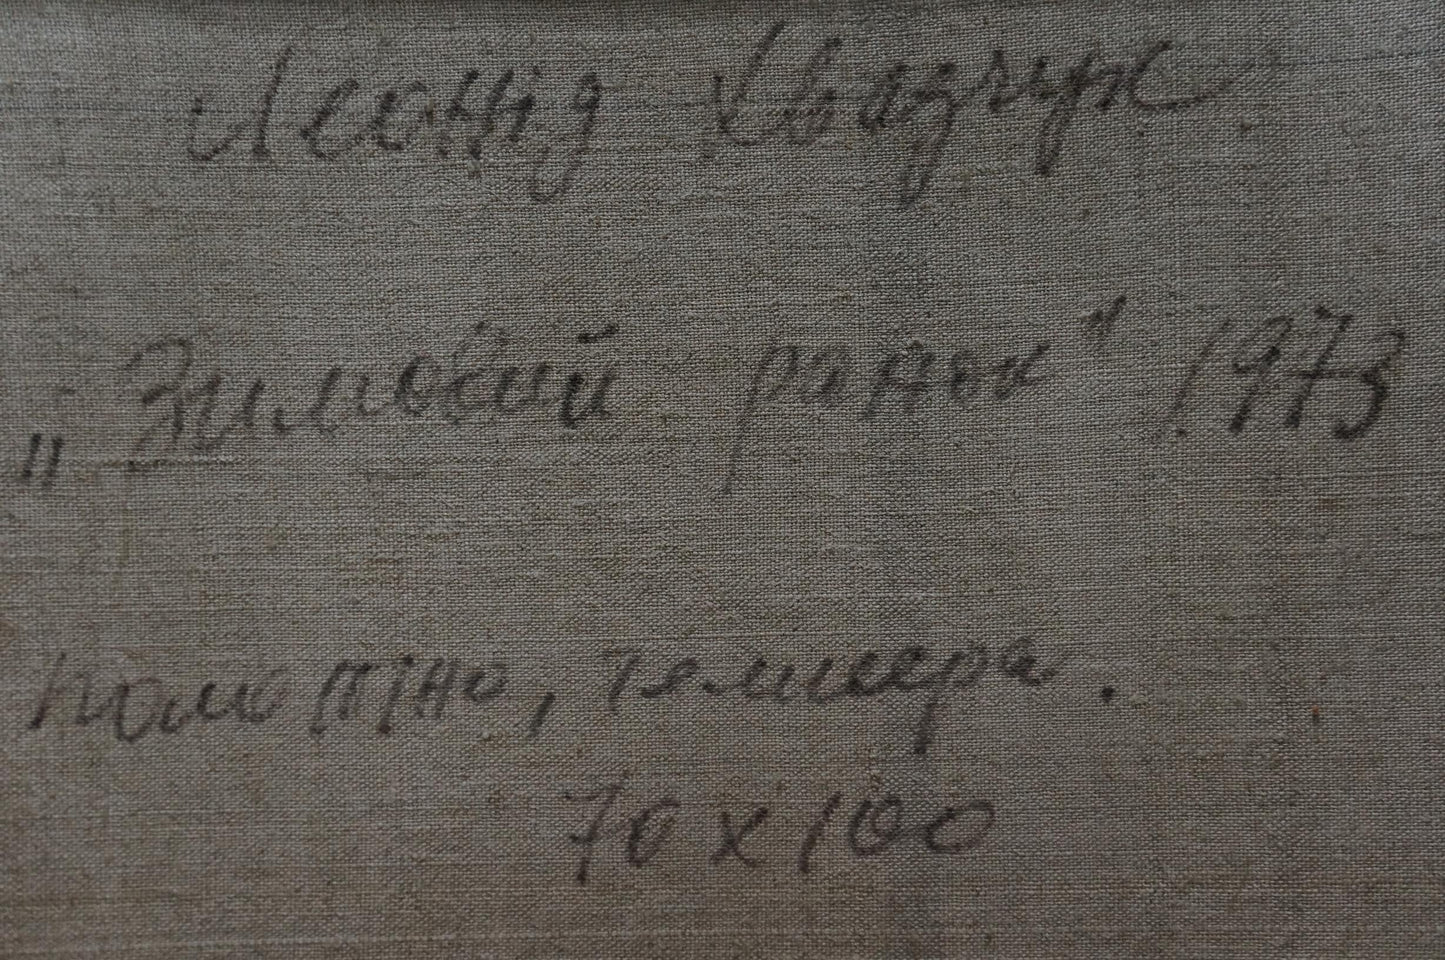 Леонід Хведчук
„Зимовий ранок" 1973
полотно, темпера.
70 х 100